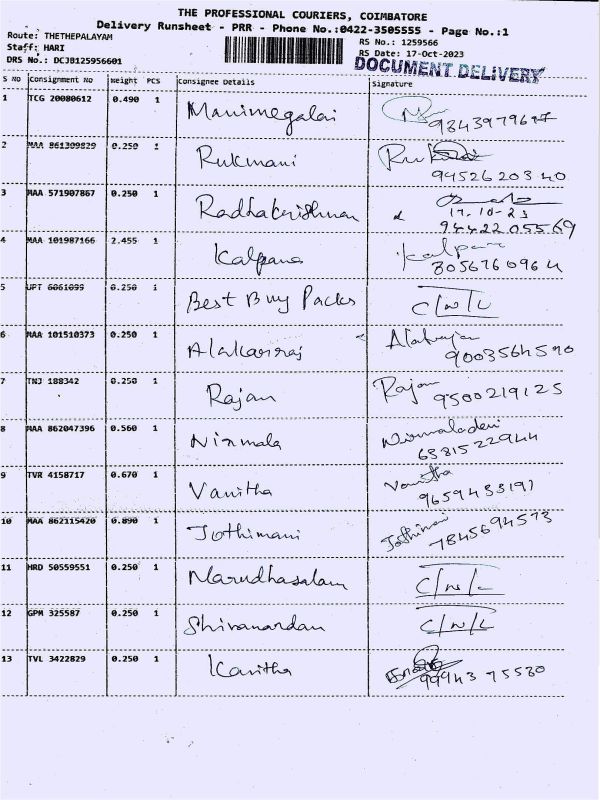 THE PROFESSIONAL COURIERS, COIMBATORE
Delivery Runsheet - PRR - Phone No.:0422-3505555 - Page No.:1
Route: THETHEPALAYAM
RS No.: 1259566
Staff: HARI
RS Date: 17-Oct-2023
DRS No.: DCJB125956601
DOCUMENT DELIVERY
S NO Consignment No Weight PCS Consignee Details Signature
1 TCG 20080612 0.490 1 Manimegalai
2 MAA 861309829 0.250 1 Rukmani
9452620340
3 MAA 571907867 0.250 1 Radhakrishnan
17-10-23
9442205569
4 MAA 101987166 2.455 1 Kalpana Kalpana
8056760964
5 UPT 6061099 0.250 1 Best Buy Packs C/N/L
6 MAA 101510373 0.250 1 Alakarraj
9003564590
7 TNJ 188342 0.250 1 Rajan Rajan 9500219125
8 MAA 862047396 0.560 1 Nirmala Nirmaladevi
6381522944
9 TVR 4158717 0.670 1 Vanitha Vanitha
9659433197
10 MAA 862115420 0.890 1 Jothimani Jothimani
7845694573
11 HRD 50559551 0.250 1 Marudhasalam C/N/L
12 GPM 325587 0.250 1 Shivanandan C/N/L
13 TVL 3422829 0.250 1 Kavitha
9994375580